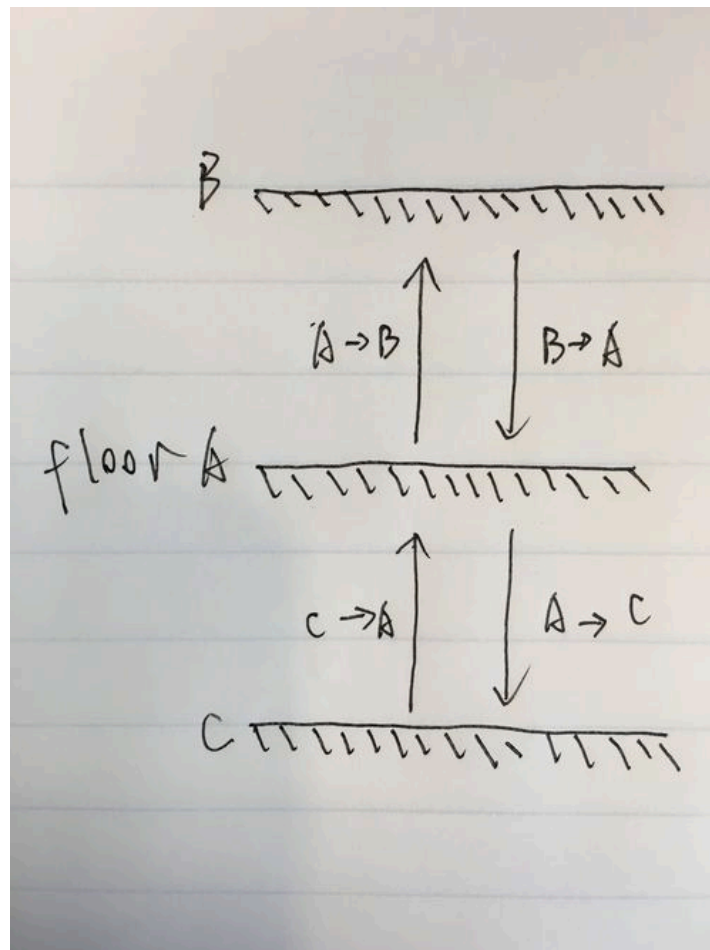 B
A→B B→A
floor A
C→A A→C
C